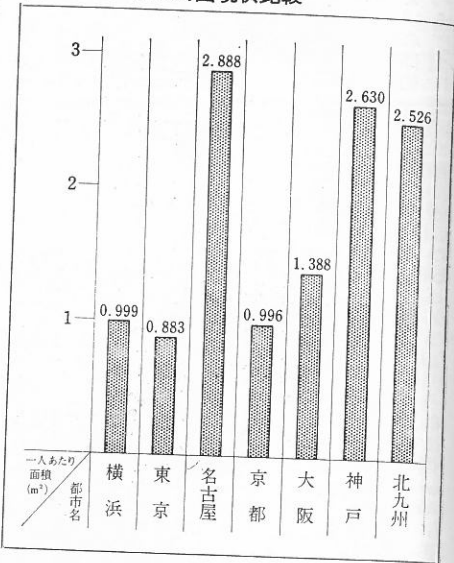 現状比較
3
2
1
0.999
0.883
2.888
0.996
1.388
2.630
2.526
一人あたり
面積
(m²)
都市名
横浜
東京
名古屋
京都
大阪
神戸
北九州